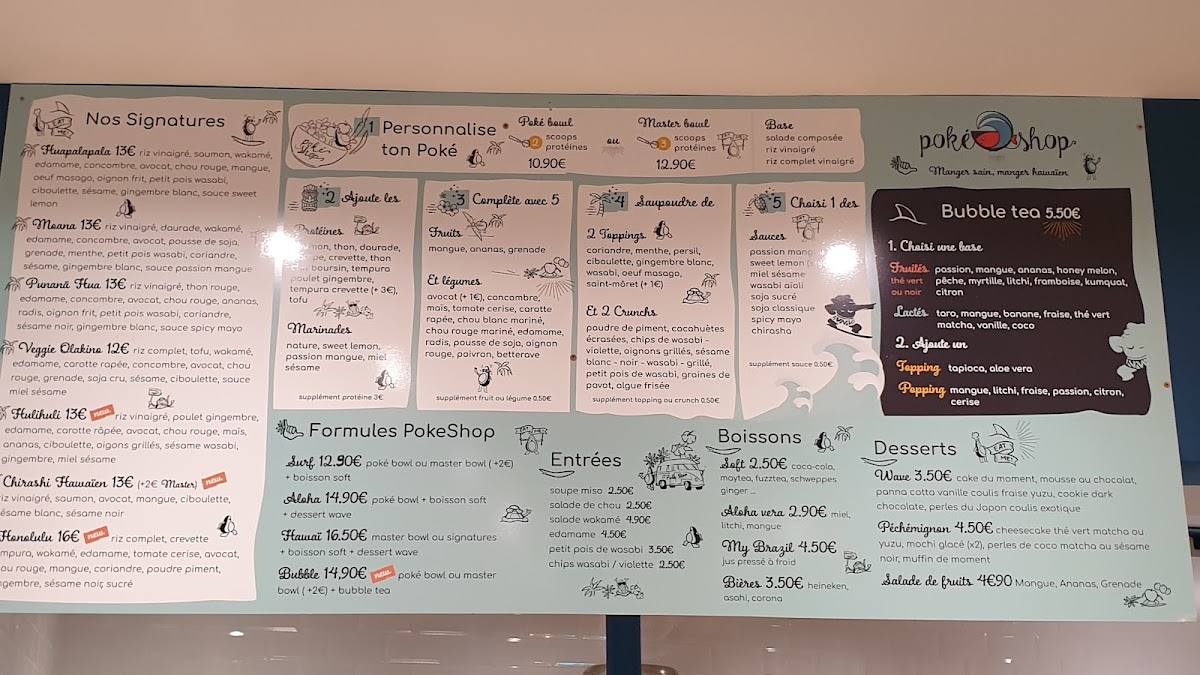 Nos Signatures
Huapalapala 13€ riz vinaigré, saumon, wakamé,
edamame, concombre, avocat, chou rouge, mangue,
oeuf masago, oignon frit, petit pois wasabi,
ciboulette, sésame, gingembre blanc, sauce sweet
lemon
Moana 13€ riz vinaigré, daurade, wakamé,
edamame, concombre, avocat, pousse de soja,
grenade, menthe, petit pois wasabi, coriandre,
sésame, gingembre blanc, sauce passion mangue
Punană Hua 13€ riz vinaigré, thon rouge,
edamame, concombre, avocat, chou rouge, ananas,
radis, oignon frit, petit pois wasabi, coriandre,
sésame noir, gingembre blanc, sauce spicy mayo
Veggie Olakino 12€ riz complet, tofu, wakamé,
edamame, carotte rapée, concombre, avocat, chou
rouge, grenade, soja cru, sésame, ciboulette, sauce
miel sésame
Hulihuli 13€ new riz vinaigré, poulet gingembre,
edamame, carotte râpée, avocat, chou rouge, maïs,
ananas, ciboulette, oigons grillés, sésame wasabi,
gingembre, miel sésame
Chirashi Hawaïen 13€ (+2€ Master) new
riz vinaigré, saumon, avocat, mangue, ciboulette,
blanc, sésame noir
Honolulu 16€ new riz complet, crevette
tempura, wakamé, edamame, tomate cerise, avocat,
chou rouge, mangue, coriandre, poudre piment,
gingembre, sésame noir, sucré
1 Personnalise
ton Poké
Poké bowl
2 scoops
protéines
10.90€
ou
Master bowl
3 scoops
protéines
12.90€
Base
salade composée
riz vinaigré
riz complet vinaigré
2 Ajoute les
Protéines
thon, daurade,
crevette, thon
boursin, tempura
poulet gingembre,
tempura crevette (+ 3€),
tofu
Marinades
nature, sweet lemon,
passion mangue, miel
sésame
supplément protéine 3€
3 Complète avec 5
Fruits
mangue, ananas, grenade
Et légumes
avocat (+ 1€), concombre,
maïs, tomate cerise, carotte
rapée, chou blanc mariné,
chou rouge mariné, edamame,
radis, pousse de soja, oignon
rouge, poivron, betterave
supplément fruit ou légume 0.50€
4 Saupoudre de
2 Toppings
coriandre, menthe, persil,
ciboulette, gingembre blanc,
wasabi, oeuf masago,
saint-môret (+ 1€)
Et 2 Crunchs
poudre de piment, cacahuètes
écrasées, chips de wasabi -
violette, oignons grillés, sésame
blanc - noir - wasabi - grillé,
petit pois wasabi, graines de
pavot, algue frisée
supplément topping ou crunch 0.50€
5 Choisi 1 des
Sauces
passion
sweet lemon
miel sésame
wasabi aïoli
soja sucré
soja classique
spicy mayo
chirasha
supplément sauce 0.50€
poké shop
Manger sain, manger hawaïen
Bubble tea 5.50€
1. Choisi une base
Fruités passion, mangue, ananas, honey melon,
thé vert pêche, myrtille, litchi, framboise, kumquat,
ou noir citron
Lactés taro, mangue, banane, fraise, thé vert
matcha, vanille, coco
2. Ajoute un
Topping tapioca, aloe vera
Popping mangue, litchi, fraise, passion, citron,
cerise
Formules PokeShop
Surf 12.90€ poké bowl ou master bowl ( +2€)
+ boisson soft
Aloha 14.90€ poké bowl + boisson soft
+ dessert wave
Hawaï 16.50€ master bowl ou signatures
+ boisson soft + dessert wave
Bubble 14,90€ new poké bowl ou master
bowl ( +2€) + bubble tea
Entrées
soupe miso 2.50€
salade de chou 2.50€
salade wakamé 4.90€
edamame 4.50€
petit pois de wasabi 3.50€
chips wasabi / violette 2.50€
Boissons
Soft 2.50€ coca-cola,
maytea, fuzztea, schweppes
ginger ...
Aloha vera 2.90€ miel,
litchi, mangue
My Brazil 4.50€
jus pressé à froid
Bières 3.50€ heineken,
asahi, corona
Desserts
EAT ME!
Wave 3.50€ cake du moment, mousse au chocolat,
panna cotta vanille coulis fraise yuzu, cookie dark
chocolate, perles du Japon coulis exotique
Péchémignon 4.50€ cheesecake thé vert matcha ou
yuzu, mochi glacé (x2), perles de coco matcha au sésame
noir, muffin de moment
Salade de fruits 4€90 Mangue, Ananas, Grenade